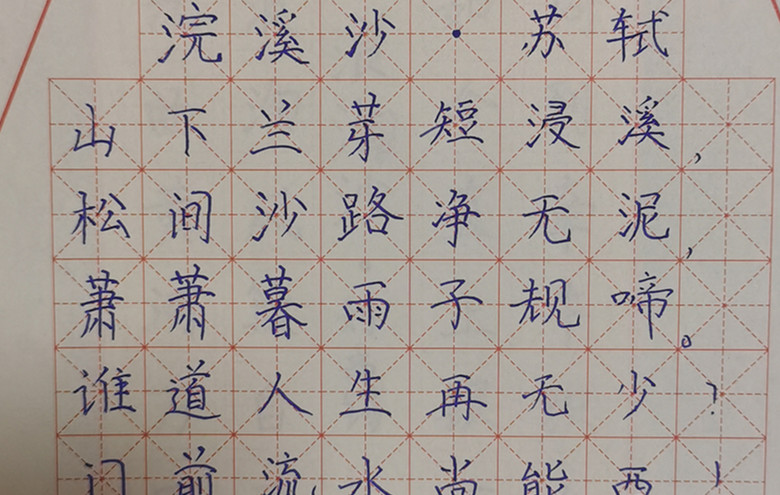 浣溪沙·苏轼
山下兰芽短浸溪,
松间沙路净无泥,
萧萧暮雨子规啼。
谁道人生再无少?
门前流水尚能西!